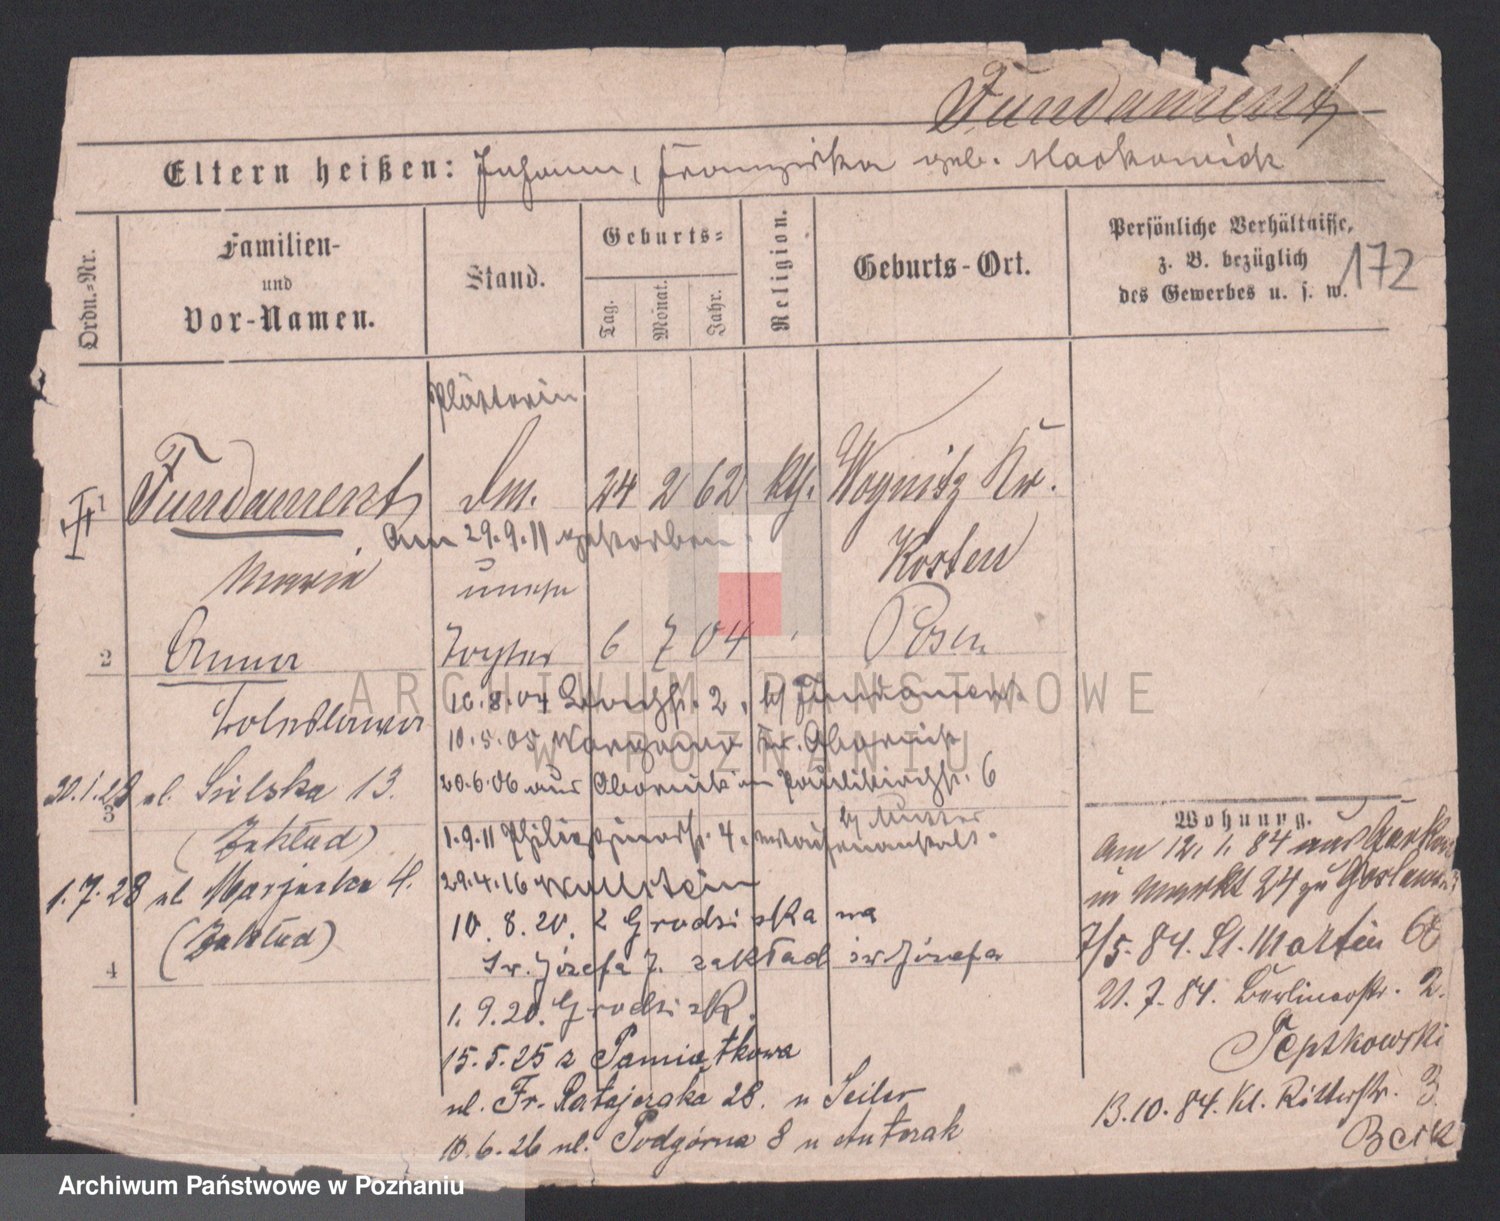 Fundament
Eltern heißen: Johann, Franziska geb. Maćkowiak
172
Ordn.-Nr.
Familien-
und
Vor-Namen.
Stand.
Geburts-
Tag.
Monat.
Jahr.
Religion.
Geburts-Ort.
Persönliche Verhältnisse,
z. B. bezüglich
des Gewerbes u. s. w.
Plätterin
1 Fundament 24 2 62 kth. Woynitz Kr.
Kosten
Am 29.9.11 gestorben.
Maria unehe
2 Anna Tochter 6 7 04 Posen
10.8.04 2. b/ Fundament
10.5.05 Kr. Obornik
20.6.06 aus Obornik in Paulikirchstr. 6
b/ Mutter
1.9.11 4. Waisenanstalt
29.4.16 Wollstein
10.8.20. z Grodziska na
św. Józefa 7. zakład św. Józefa
1.9.20. Grodzisk.
15.5.25 z Pamiątkowa
ul. Fr. Ratajczaka 28. u Seiler
10.6.26 ul. Podgórna 8 u Antczak
30.1.28 ul. Sielska 13.
3
(Zakład)
1.7.28 ul.
(Zakład)
4
Wohnung.
Am 12.1.84 aus
in Markt 24 zu
7/5. 84. St. Martin
21.7.84. Berlinerstr. 2.
13.10.84. Kl. Ritterstr. 3
ARCHIWUM PAŃSTWOWE
W POZNANIU
Archiwum Państwowe w Poznaniu